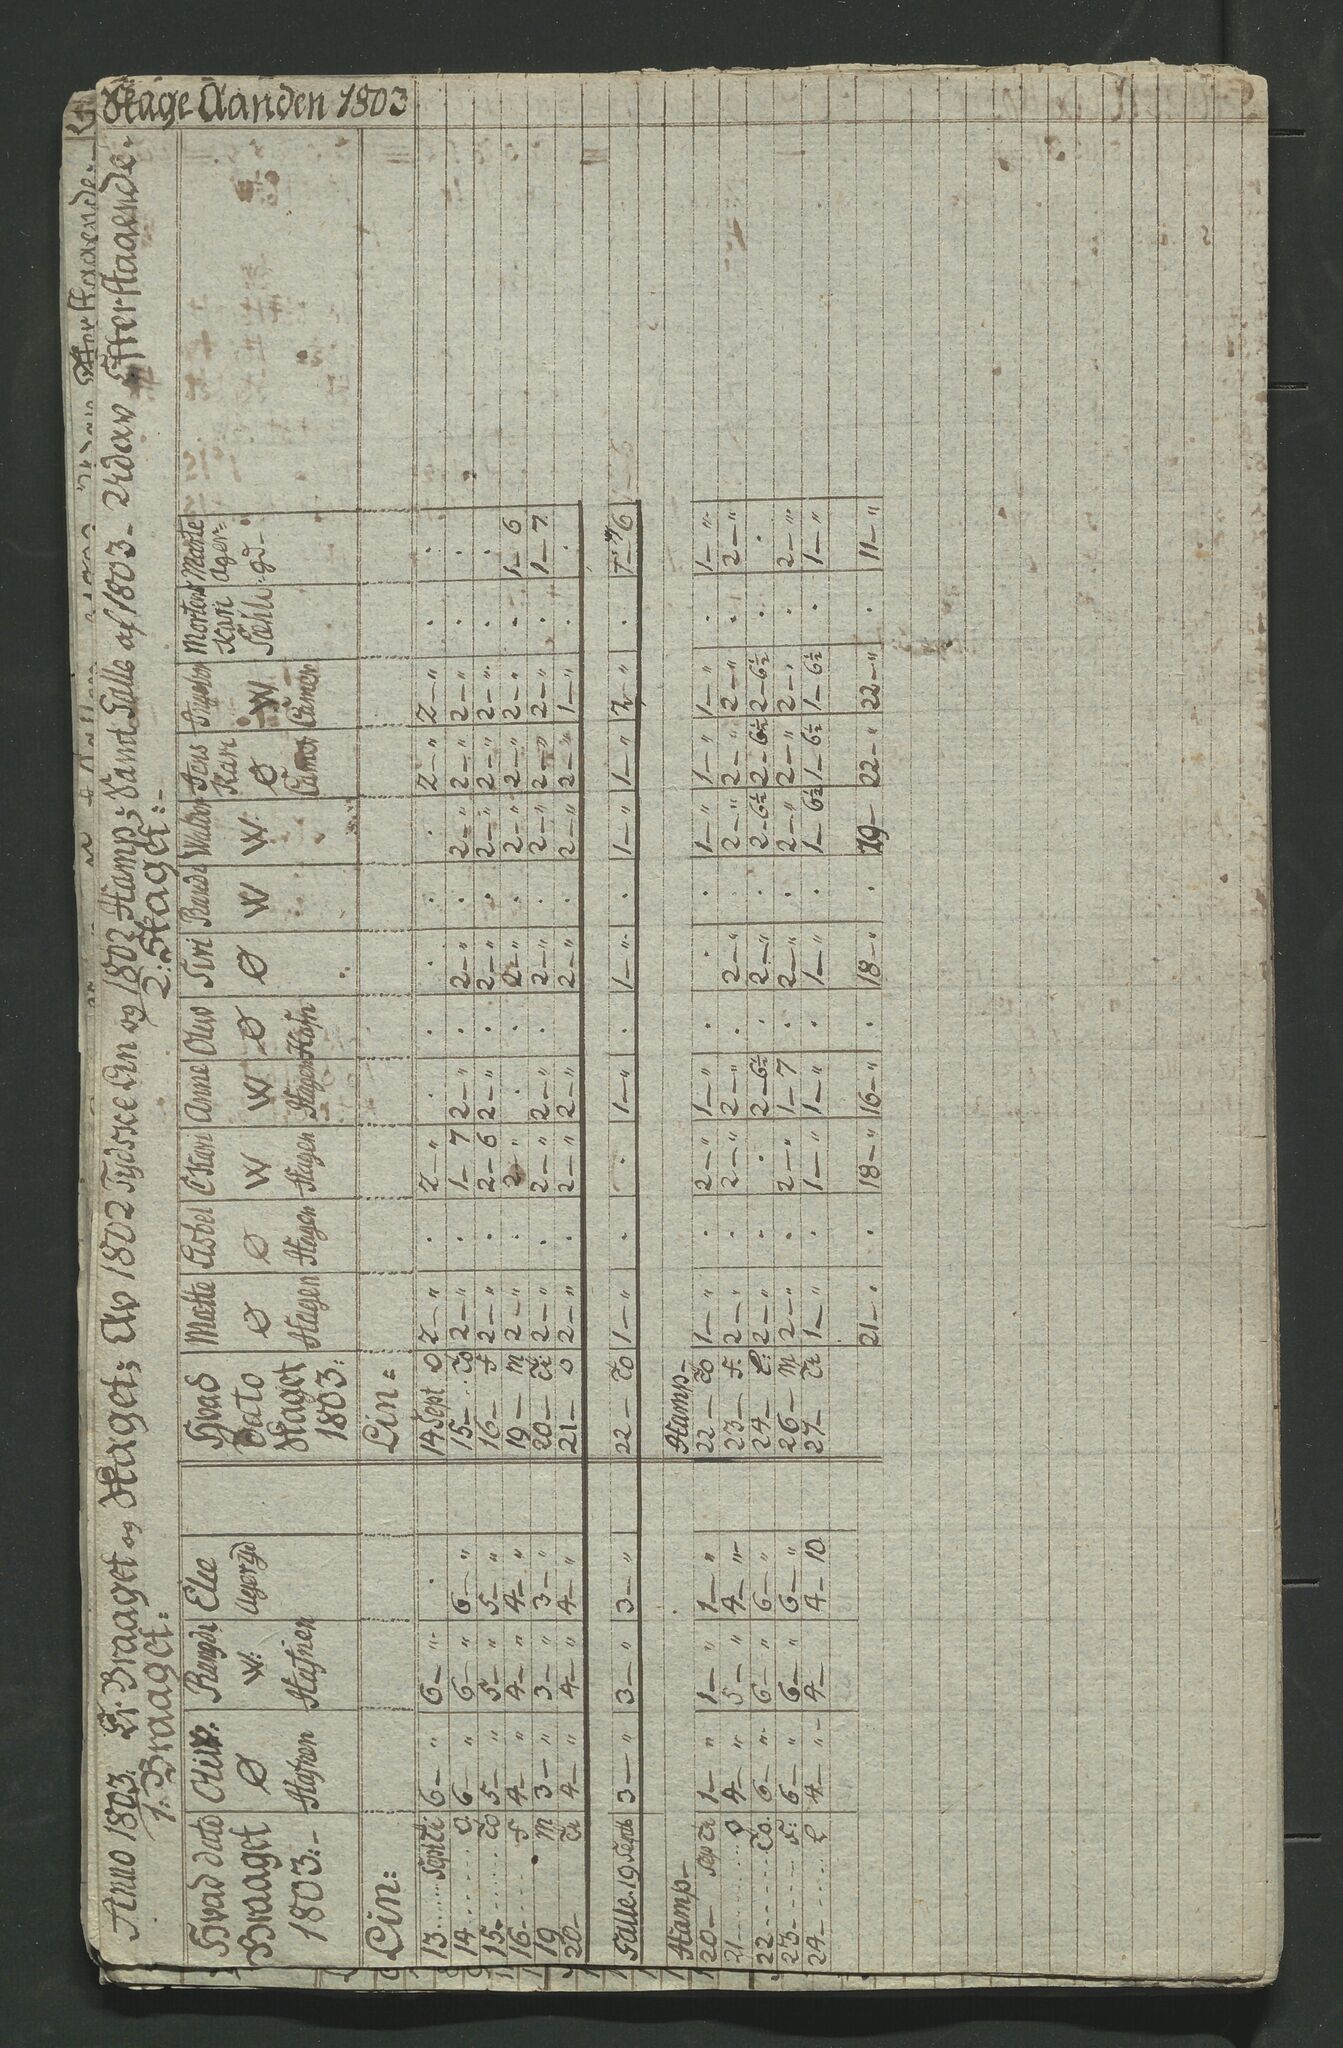 Hage Aanden 1803
Anno 1803. Er Braaget og Haget; Av 1802 Tydske Lin og 1802 Hamp; Samt Falle af 1803 - Udav Efterstaaende.
1: Braaget:
2: Haget:-
Hvad Dato Braaget 1803:-
Ø Hafnen
Rangdi W. Hafnen
Else Agerejd
Lin:
13 Sept Ti: 6—" 6—" .
14 O 6—" 6—" 6—"
15 To 5—" 5—" 5—"
16 F 4—" 4—" 4—"
19 M 3—" 3—" 3—"
20 Ti 4—" 4—" 4—"
Falle. 19 Septb 3—" 3—" 3—"
Hamp—
20 Sep Ti 1—" 1—" 1—"
21 O 4—" 5—" 4—"
22 To. 6—" 6—" 6—"
23 F: 6—" 6—" 6—"
24 L 4—" 4— 4—10
Hvad Dato Haget 1803:
Matte Ø Hagen
Lisbet Ø Hagen
C Kari W Hagen
Anne W Hagen
Oluv Ø Hafn
Siri Ø
Randi W
Waldbor W.
Jens Kari Ø Camer
Ingebor W Camer
Mortens Kari
Marte Ager=gd—
Lin:
14 Sept O 2—" . 2—" . . . . . 2—" 2—" . .
15 To 2—" . 1—7 2—" . 2—" . 2—" 2—" 2—" . .
16 F 2—" . 2—6 2—" . 2—" . 2—" 2—" 2—" . .
19 M 2—" . 2—" . . 2—" . 2—" 2—" 2—" . 1—6
20 Ti 2—" . 2—" 2—" . 2—" . 2—" 2—" 2—" . 1—7
21 O 2—" . 2—" 2—" 2—" . 2—" 2—" 1—" . .
22 To 1—" . . 1—" . 1—" . 1—" 1—" 2—" .
Hamp—
22 To 1—" . 2—" 1—" . . . 1—" 1—" 1—" . 1—"
23 F. 2—" . 2—" 2—" . 2—" . 2—" 2—" 2—" . 2—"
24 L: 2—" . . 2—6½ . 2—" . 2—6½ 2—6½ 2—6½ . .
26 M 2—" . 2—" 1—7 . 2—" . 2—" 2—" 2—" . 2—"
27 Ti 1—" . 1—" 1—" . 1—" . 1—6½ 1—6½ 1—6½ . 1—"
21—" . 18—" 16—" . 18—" . 19— 22—" 22—" . 11—"